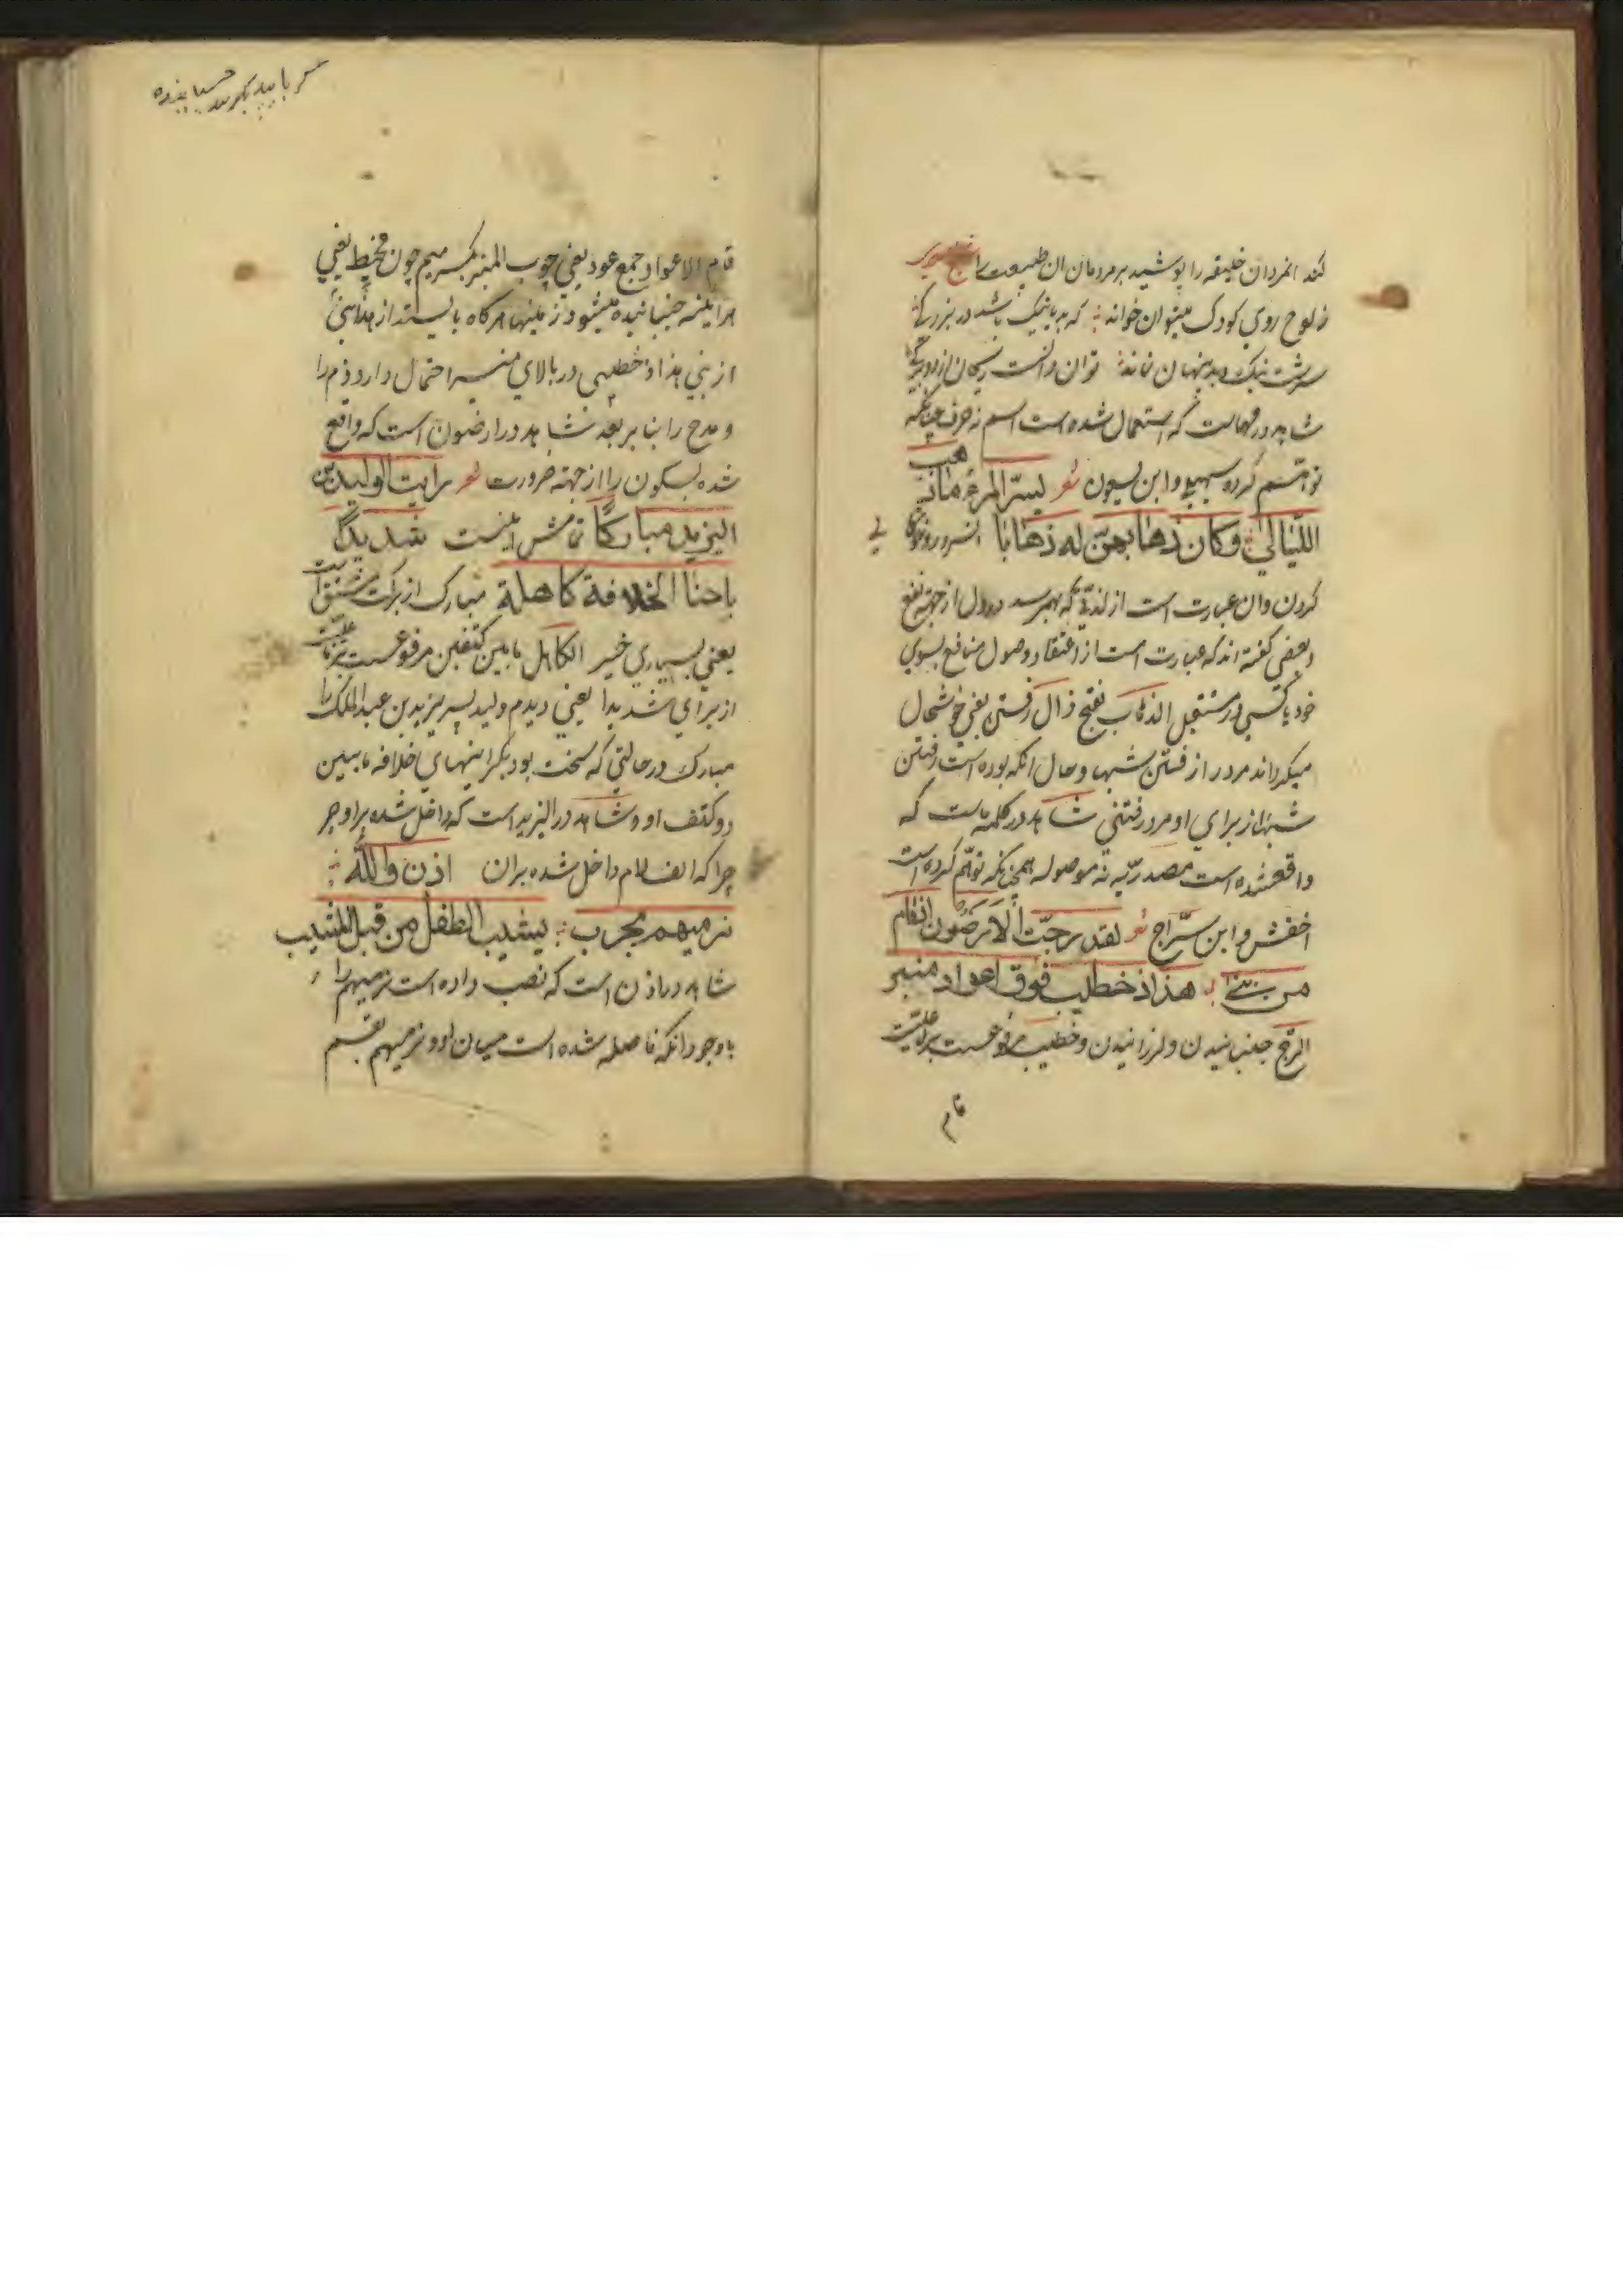 کند انمردان خلیقه را پوشید بر مردمان ان طبیعت را
ز لوح روی کودک میتوان خواند که بد یا نیک باشد در بزرگی
سرشت نیک و بد پنهان نماند توان دانست ریحان از دو برگی
شاهد در مهماست که استعمال شده است اسم نه حرف چنانکه
توهم کرده سهیلی و ابن یسعون شعر یسرّ المرء ما ذهب
اللّیالی وکان ذهابهنّ له ذهابا السرور خوشحال
کردن وان عبارت است از لذتی که بهمرسد در دل از جهته نفع
و بعضی گفته اند که عبارت است از اعتقاد وصول منافع بسوی
خود یا کسی در مستقبل الذهاب بفتح ذال رفتن یعنی خوشحال
میگرداند مرد را رفتن شبها و حال انکه بوده است رفتن
شبها از برای او مرد رفتنی شاهد در کلمه ماست که
واقعشده است مصدریّه نه موصوله همچنانکه توهّم کرده است
اخفش و ابن سرّاج شعر لقد رجّت الارضون اذ قام
من بنی هذاذ خطیب فوق اعواد منبر
الرّج جنبانیدن و لرزانیدن و خطیب مرفوعست بر فاعلیّت
قام
قام الاعواد جمع عود یعنی چوب المنبر بکسر میم چون مخیط یعنی
هر اینه جنبانیده میشود زمینها هرگاه بایستد از
از بنی هذاذ خطیبی در بالای منبر احتمال دارد ذم را
و مدح را بنا بر بعد شاهد در ارضون است که واقع
شده بسکون را از جهته ضرورت شعر رایت الولید بن
الیزید مبارکًا تمامش اینست شدیدا
باحنا الخلافة کاهله مبارک از برکت مشتق است
یعنی بسیاری خیر الکاهل مابین کتفین مرفوعست بر فاعلیّت
از برای شدیدا یعنی دیدم ولید پسر یزید بن عبد الملک را
مبارک در حالتی که سخت بود بکرانیهای خلافه مابین
دو کتف او و شاهد در الیزید است که داخل شده بر او جر
چرا که الف لام داخل شده بران اذن والله
نرمیهم بحرب یشیب الطفل من قبل المشیب
شاهد در اذن است که نصب داده است نرمیهم را
باوجود انکه فاصله شده است میان او و نرمیهم بقسم